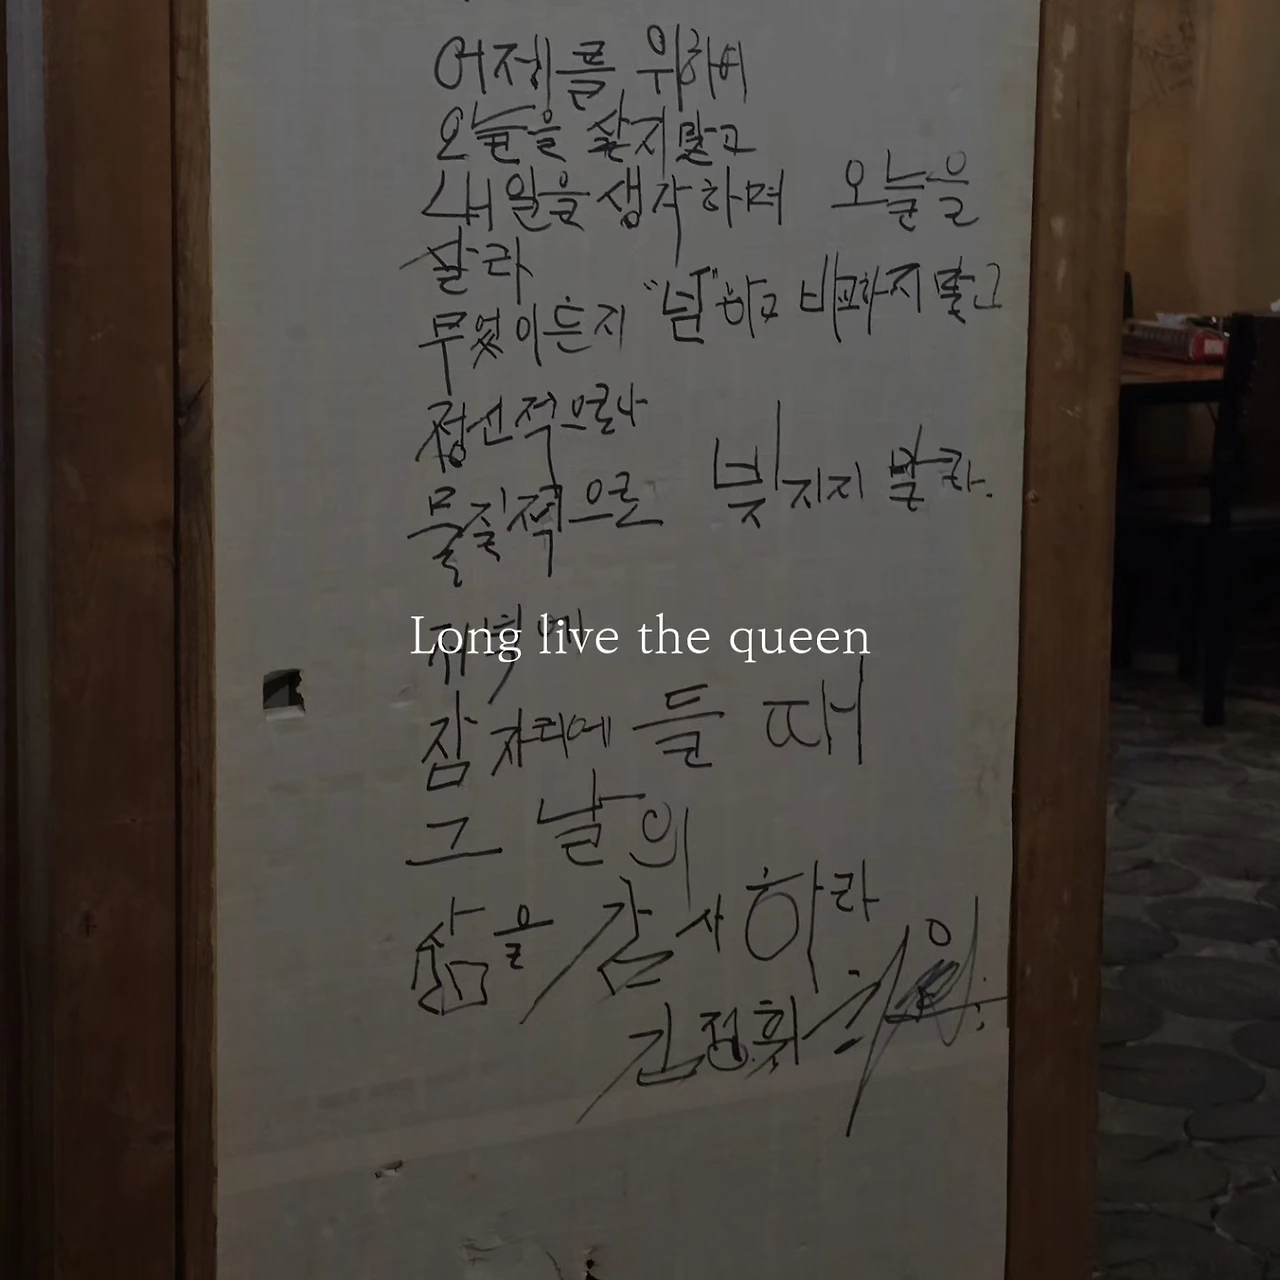 어제를 위하여
오늘을 살지말고
내일을 생각하며 오늘을
살라
무엇이든지 "널"하고 비교하지말고
정신적으로나
물질적으로 빚지지 말라.
저녁에
Long live the queen
잠자리에 들 때
그 날의
삶을 감사하라